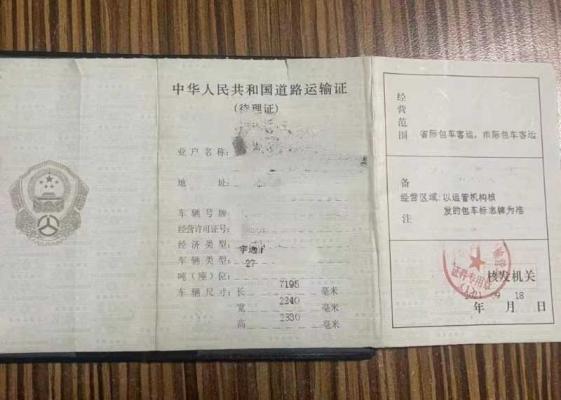 中华人民共和国道路运输证
(待理证)
业户名称:
地 址:
车辆号牌
经营许可证号
经济类型:
车辆类型:
吨(座)位: 27
车辆尺寸: 长 7195 毫米
宽 2240 毫米
高 2330 毫米
经营范围 省际包车客运，市际包车客运
备注 经营区域:以运管机构核
发的包车标志牌为准
核发机关
证件专用章
年 月 18 日